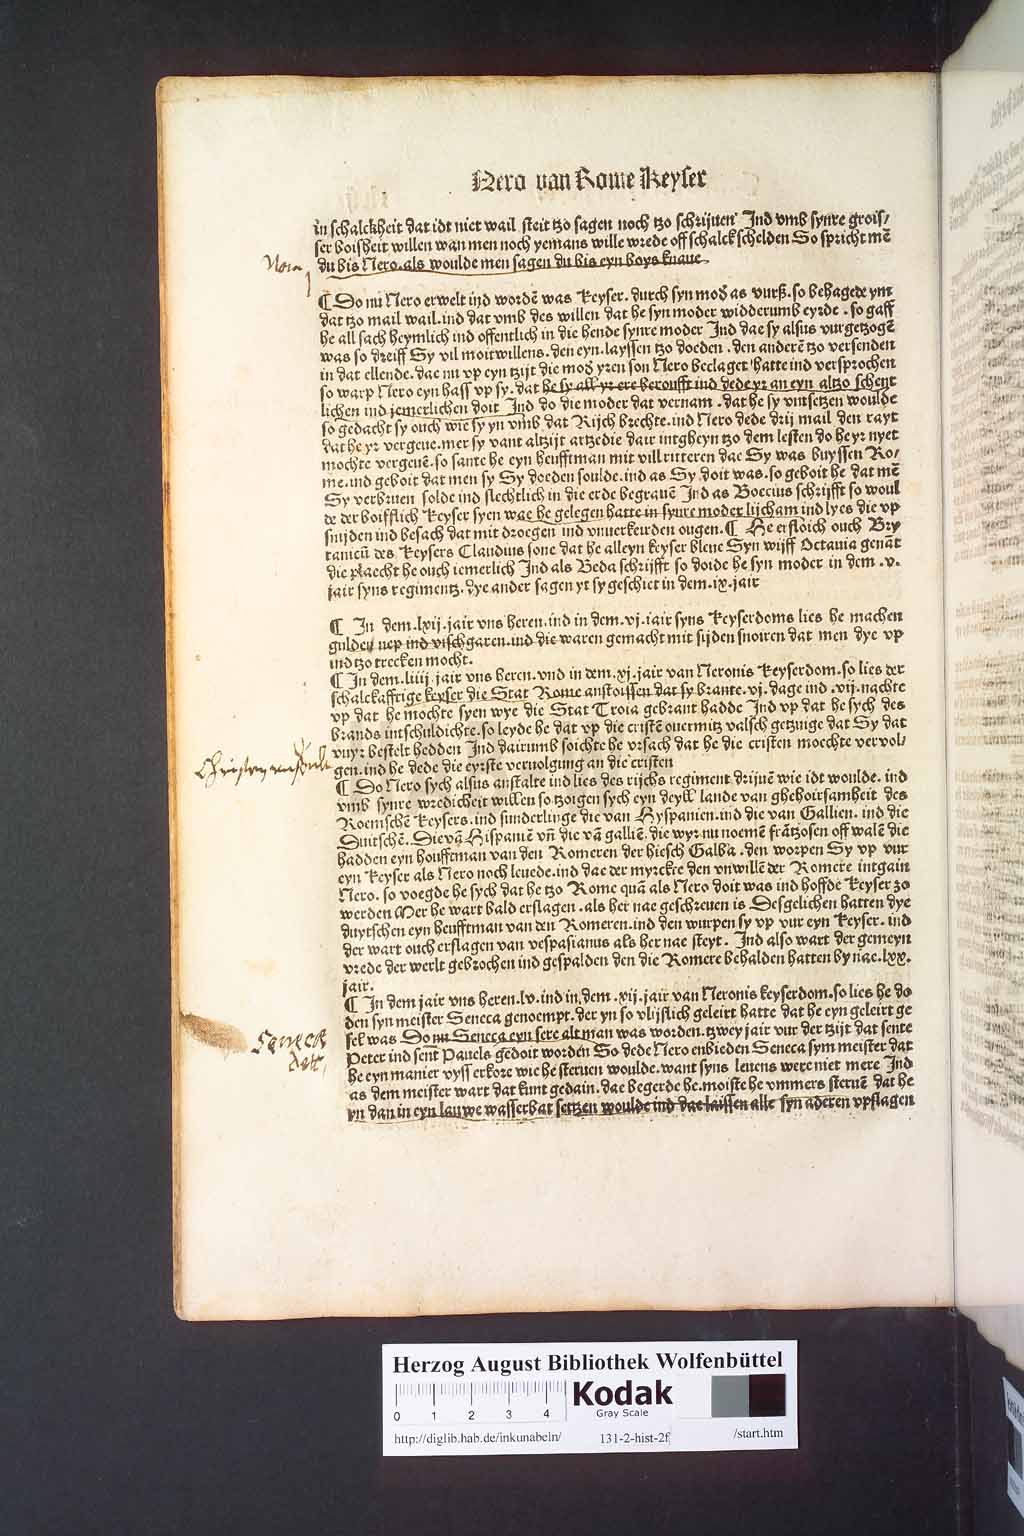 Nero van Rome Keyser
in schalckheit dat idt niet wail steit tzo sagen noch tzo schrijuen Ind vmb synre grois/
ser boisheit willen wan men noch yemans wille wrede off schalck schelden So spricht mē
du bis Nero. als woulde men sagen du bis eyn boys knaue.
Nero
¶ Do nu Nero erwelt ind wordē was keyser. durch syn mod as vurß. so behagede ym
dat tzo mail wail. ind dat vmb des willen dat he syn moder widderumb eyrde. so gaff
he all sach heymlich ind offentlich in die hende synre moder Ind dae sy alsus vurgetzogē
was so dreiff Sy vil moitwillens. den eyn. layssen tzo doeden. den anderē tzo versenden
in dat ellende. dae nu vp eyn tzijt die mod yren son Nero beclaget hatte ind versprochen
so warp Nero eyn hass vp sy. dat he sy all yr ere beroufft ind dede yr an eyn altzo schent
lichen ind jemerlichen doit Ind do die moder dat vernam. dat he sy vntsetzen woulde
so gedacht sy ouch wie sy yn vmb dat Rijch brechte. ind Nero dede drij mail den rayt
dat he yr vergeue. mer sy vant altzijt artzedie dair intgheyn tzo dem lesten do he yr nyet
mochte vergeuē. so sante he eyn heufftman mit vill ritteren dae Sy was buyssen Ro/
me. ind geboit dat men sy Sy doeden soulde. ind as Sy doit was. so geboit he dat mē
Sy verbruen solde ind slechtlich in die erde begrauē Ind as Boecius schrijfft so woul
de der boifflich keyser syen wae he gelegen hatte in synre moder lijcham ind lyes die vp
snijden ind besach dat mit droegen ind vnuerkeirden ougen. ¶ He erfloich ouch Bry
tanicū des keysers Claudius sone dat he alleyn keyser bleue Syn wijff Octauia genāt
die placht he ouch iemerlich Ind als Beda schrijfft so doide he syn moder in dem .v.
jair syns regimentz. dye ander sagen yt sy geschiet in dem .ix. jair
¶ In dem .lxij. jair vns heren. ind in dem .vj. iair syns keyserdoms lies he machen
gulden nep ind vischgaren. ind die waren gemacht mit sijden snoiren dat men dye vp
ind tzo trecken mocht.
¶ In dem .liiij. jair vns heren. vnd in dem .xj. jair van Neronis keyserdom. so lies der
schalckafftige keyser die Stat Rome anstoissen dat sy brante. vj. dage ind .vij. nachte
vp dat he mochte syen wye die Stat Troia gebrant hadde Ind vp dat he sych des
brands intschuldichte. so leyde he dat vp die cristē ouermitz valsch getzuige dat Sy dat
vuyr bestelt hedden Ind dairumb soichte he vrsach dat he die cristen moechte vervol/
gen. ind he dede die eyrste veruolgung an die cristen
¶ Do Nero sych alsus anstalte ind lies des rijchs regiment drijuē wie idt woulde. ind
vmb synre wredicheit willen so tzoigen sych eyn deyll lande van ghehoirsamheit des
Roemschē keysers. ind sunderlinge die van Hyspanien. ind die van Gallien. ind die
Duitschē. Die vā Hispaniē vñ die vā galliē. die wyr nu noemē frātzosen off walē die
hadden eyn houfftman van den Romeren der hiesch Galba. den worpen Sy vp vur
eyn keyser als Nero noch leuede. ind dae der myrckte den vnwillē der Romere intgain
Nero. so voegde he sych dat he tzo Rome quā als Nero doit was ind hoffde keyser zo
werden Mer he wart bald erslagen. als her nae geschreuen is Desgelichen hatten dye
duytschen eyn heufftman van den Romeren. ind den wurpen sy vp vur eyn keyser. ind
der wart ouch erslagen van vespasianus als her nae steyt. Ind also wart der gemeyn
vrede der werlt gebrochen ind gespalden den die Romere behalden hatten by nae. lxx.
jair.
¶ In dem jair vns heren. lv. ind in dem .xij. jair van Neronis keyserdom. so lies he do
den syn meister Seneca genoempt. der yn so vlijslich geleirt hatte dat he eyn geleirt ge
sel was. Do nu Seneca eyn sere alt man was worden. tzwey jair vur der tzijt dat sente
Peter ind sent Pauels gedoit worden So dede Nero enbieden Seneca sym meister dat
he eyn manier vyss erkore wie he steruen woulde. want syns leuens were niet mere Ind
as dem meister wart dat kunt gedain. dae begerde he. moiste he vmmers steruē dat he
yn dan in eyn lauwe wasserbat setzen woulde ind dae laissen alle syn aderen vpslagen
Seneca
Herzog August Bibliothek Wolfenbüttel
0 1 2 3 4
Kodak
Gray Scale
http://diglib.hab.de/inkunabeln/ 131-2-hist-2f /start.htm